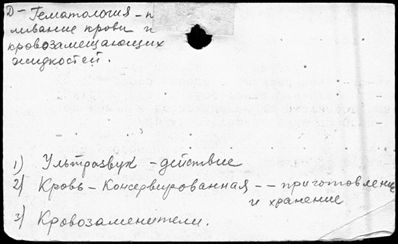 D - Гематология - п
ливание крови и
кровозамещающих
жидкостей.
1) Ультразвук - действие
2) Кровь - консервированная -- приготовление
и хранение
3) Кровозаменители.